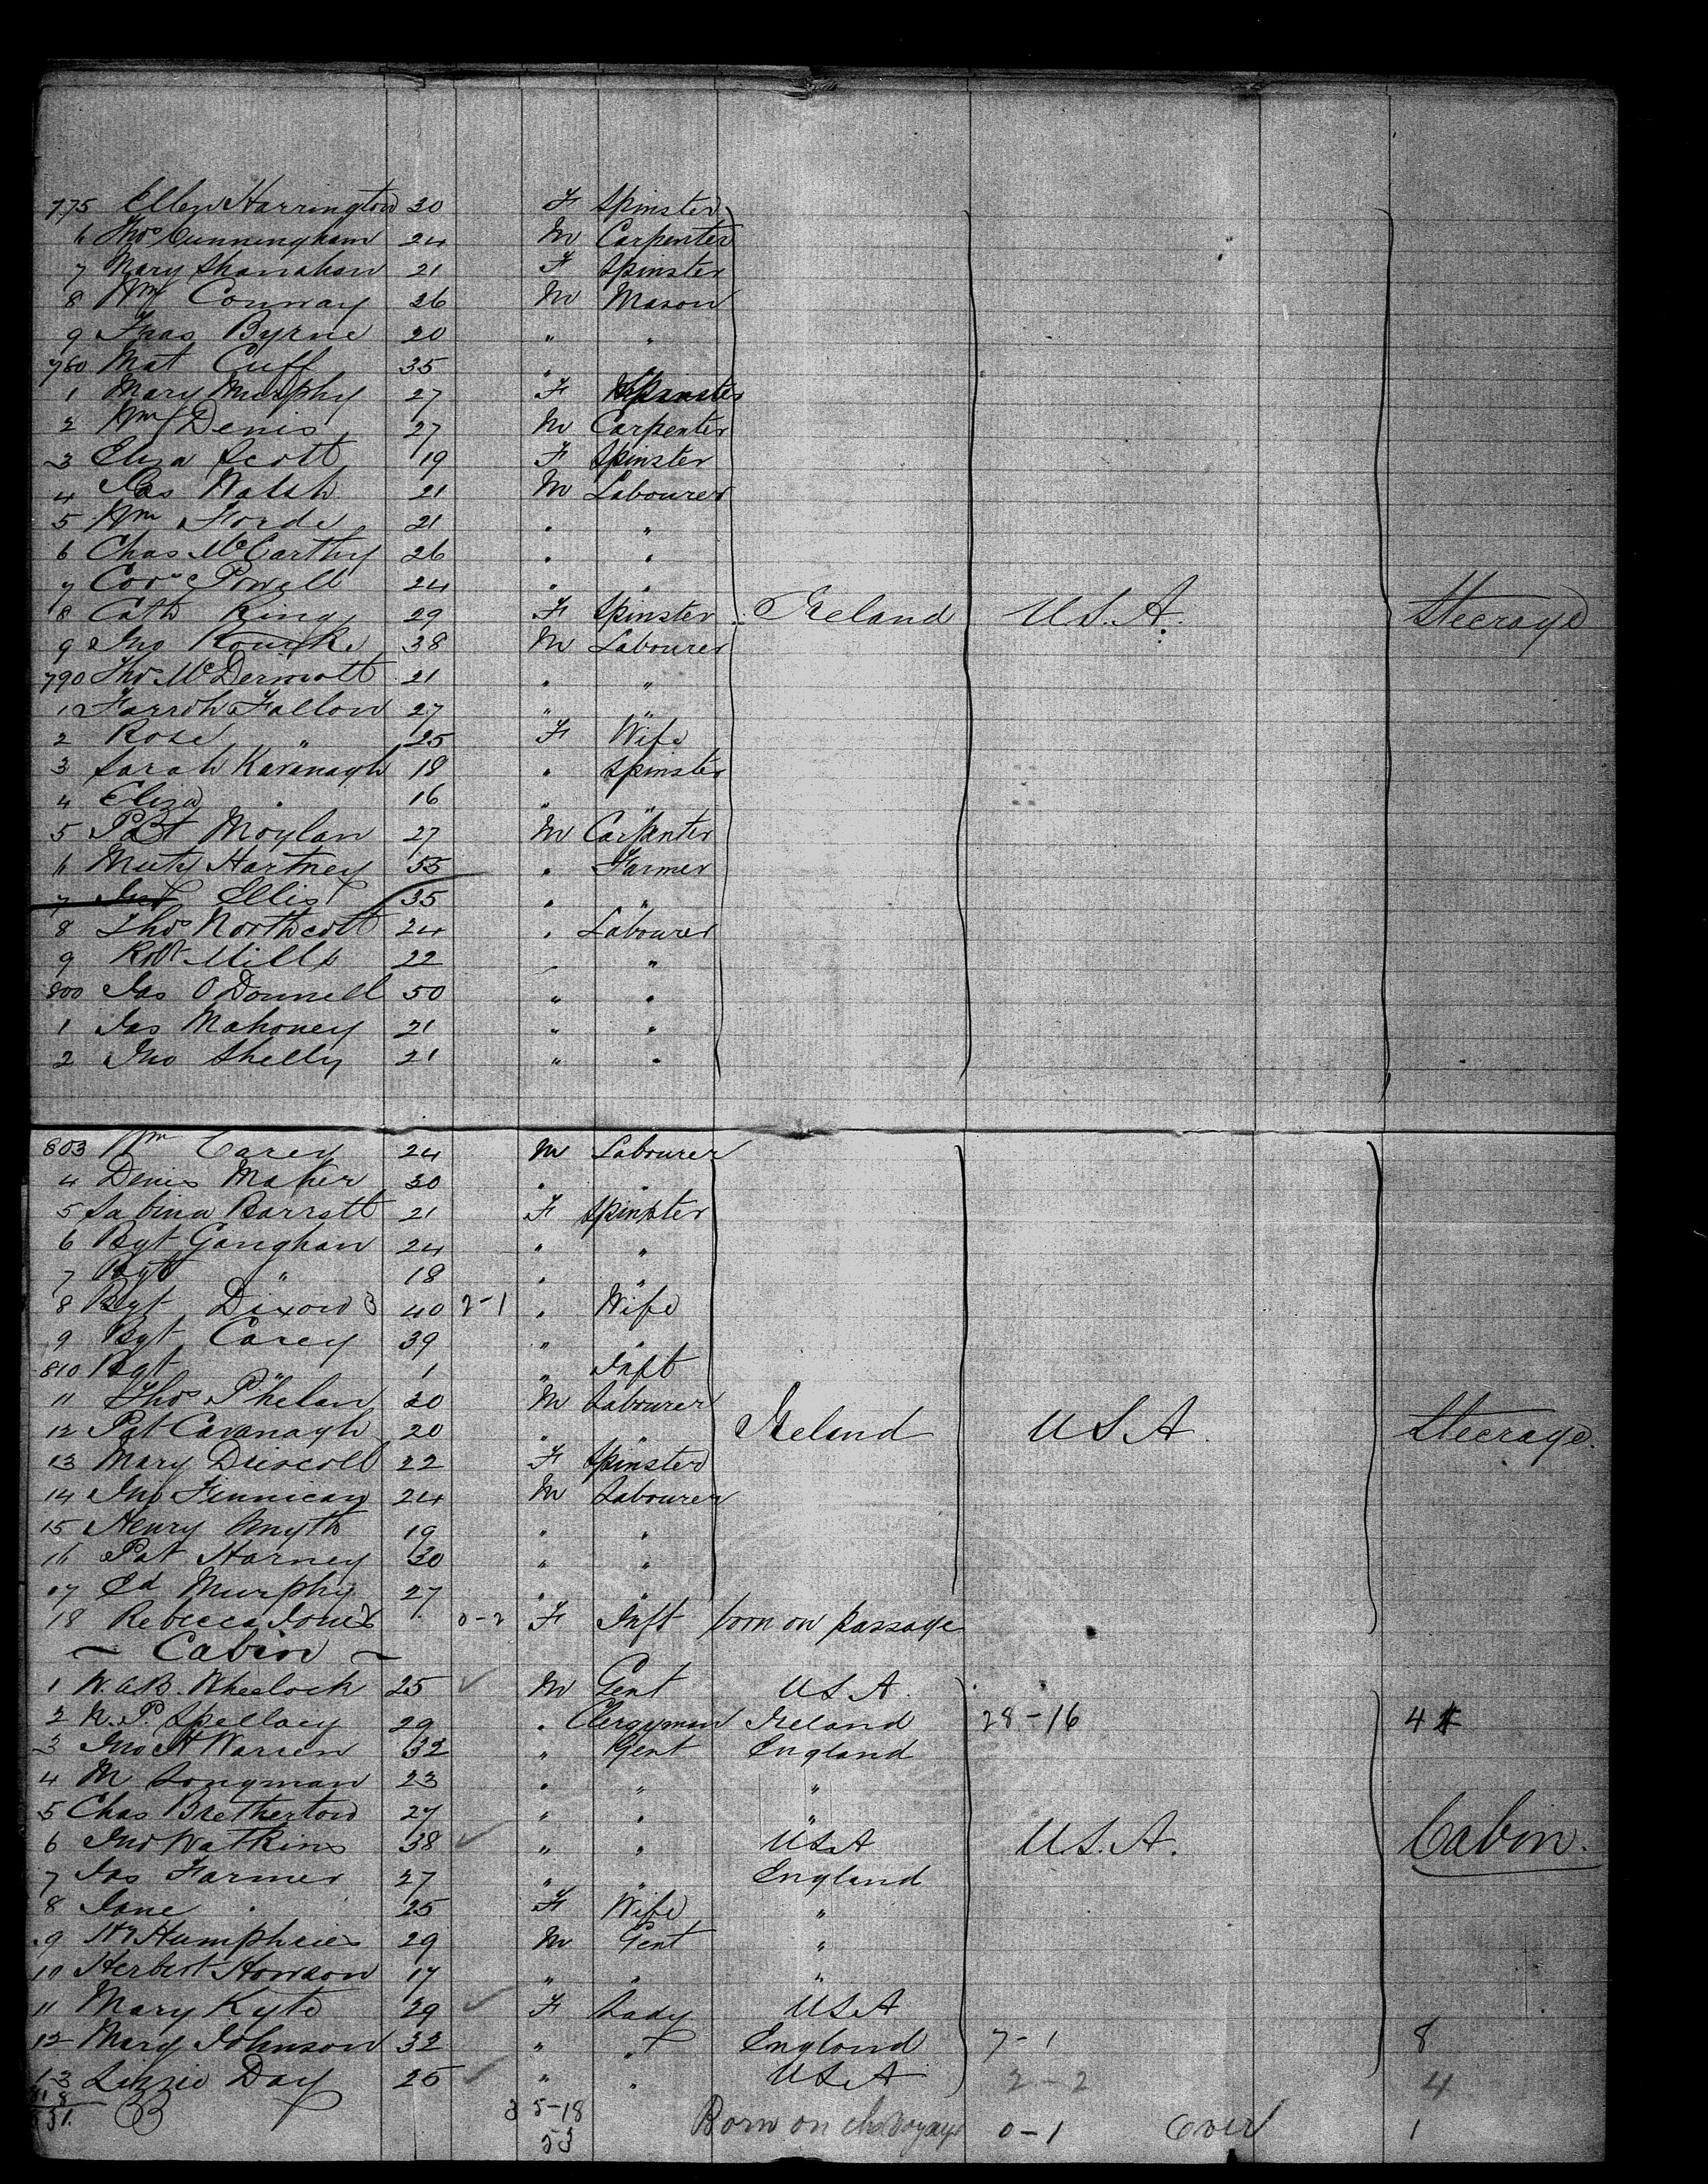 775 Ellen Harrington 30 F Spinster
6 Thos Cunningham 24 M Carpenter
7 Mary Shanahan 21 F Spinster
8 Wm Conway 26 M Mason
9 Thos Byrne 20 " "
780 Mat Cuff 35 "
1 Mary Murphy 27 F Spinster
2 Wm Denis 27 M Carpenter
3 Eliza Scott 19 F Spinster
4 Jas Walsh 21 M Labourer
5 Wm Forde 21 " "
6 Chas McCarthy 26 " "
7 Powell 24 " "
8 Cath King 29 F Spinster Ireland U.S.A. Steerage
9 Jno Rourke 38 M Labourer
790 Thos McDermott 21 " "
1 Fallon 27 " "
2 Rose " 25 F Wife
3 Sarah Kavanagh 18 " Spinster
4 Eliza " 16 " "
5 Pat Moylan 27 M Carpenter
6 Hartney 55 " Farmer
7 Ellis 35 " "
8 Thos Northcott 24 " Labourer
9 Robt Mills 22 " "
800 Jas O'Donnell 50 " "
1 Jas Mahoney 21 " "
2 Jno Shelly 21 " "
803 Wm Carey 24 M Labourer
4 Denis Maher 30 " "
5 Sabina Barrett 21 F Spinster
6 Bgt Gaughan 24 " "
7 Bgt " 18 " "
8 Bgt Dixon 3 40 2-1 " Wife
9 Bgt Carey 39 " "
810 Bgt " 1 " Inft
11 Thos Phelan 20 M Labourer
12 Pat Cavanagh 20 " " Ireland U.S.A. Steerage.
13 Mary Driscoll 22 F Spinster
14 Jno Finnican 24 M Labourer
15 Henry Smyth 19 " "
16 Pat Harney 30 " "
17 Ed Murphy 27 " "
18 Rebecca Jones 0-2 F Inft born on passage
~ Cabin ~
1 W.A.B. Wheelock 25 M Gent U.S.A.
2 N.P. Spellacy 29 " Clergyman Ireland 28-16 4
3 Jno H Warren 32 " Gent England
4 M Longman 23 " " "
5 Chas Bretherton 27 " " "
6 Jno Watkins 38 " " U.S.A U.S.A. Cabin.
7 Jas Farmer 27 " " England
8 Jane " 25 F Wife "
9 Humphries 29 M Gent "
10 Herbert Howson 17 " " "
11 Mary Kyte 29 F Lady U.S.A
12 Mary Johnson 32 " " England 7-1 8
13 Lizzie Day 25 " " U.S.A 2-2 4
818
3 5-18
53 Born on the Voyage 0-1 Over 1